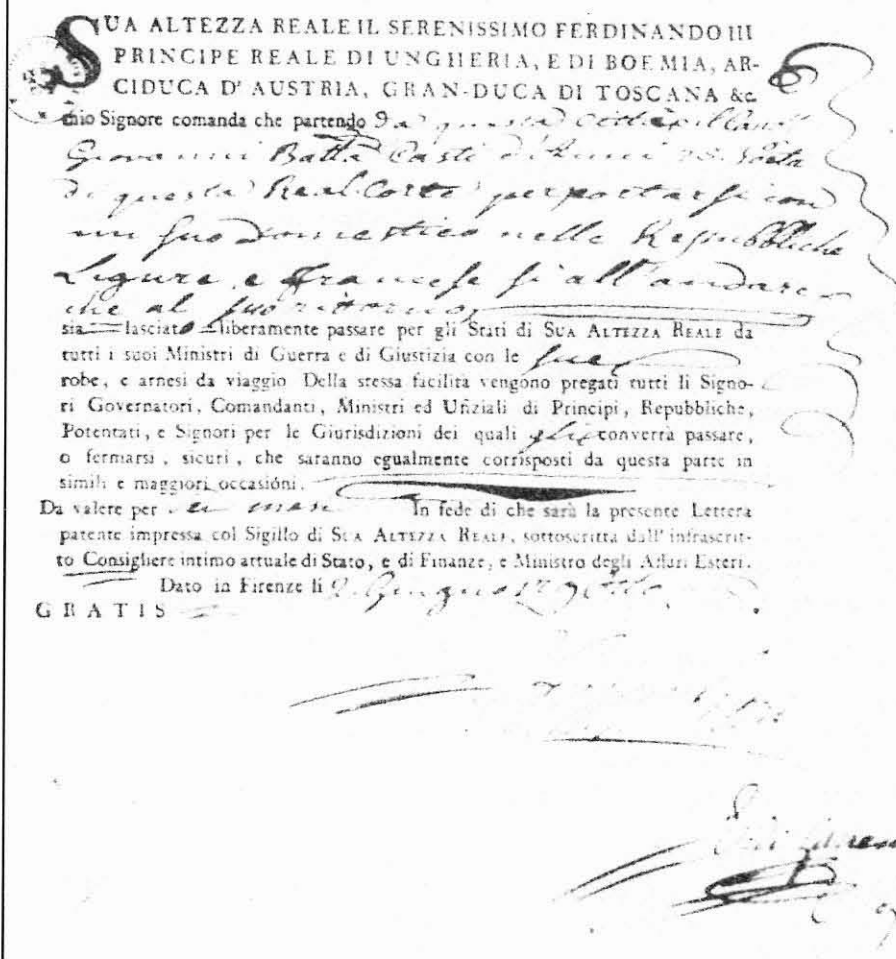 SUA ALTEZZA REALE IL SERENISSIMO FERDINANDO III
PRINCIPE REALE DI UNGHERIA, E DI BOEMIA, AR-
CIDUCA D' AUSTRIA, GRAN-DUCA DI TOSCANA &c.
mio Signore comanda che partendo Da questa Città
Giovanni Batta Casti Poeta
di questa Real Corte per portarsi con
un suo Domestico nelle Repubbliche
Ligure, e Francese si all'andare
che al suo ritorno,
sia lasciato liberamente passare per gli Stati di SUA ALTEZZA REALE da
tutti i suoi Ministri di Guerra e di Giustizia con le sue
robe, e arnesi da viaggio Della stessa facilità vengono pregati tutti li Signo-
ri Governatori, Comandanti, Ministri ed Ufiziali di Principi, Repubbliche,
Potentati, e Signori per le Giurisdizioni dei quali gli converrà passare,
o fermarsi, sicuri, che saranno egualmente corrisposti da questa parte in
simili e maggiori occasióni.
Da valere per sei mesi In fede di che sarà la presente Lettera
patente impressa col Sigillo di SUA ALTEZZA REALE, sottoscritta dall' infrascrit-
to Consigliere intimo attuale di Stato, e di Finanze, e Ministro degli Affari Esteri.
Dato in Firenze li Giugno
GRATIS